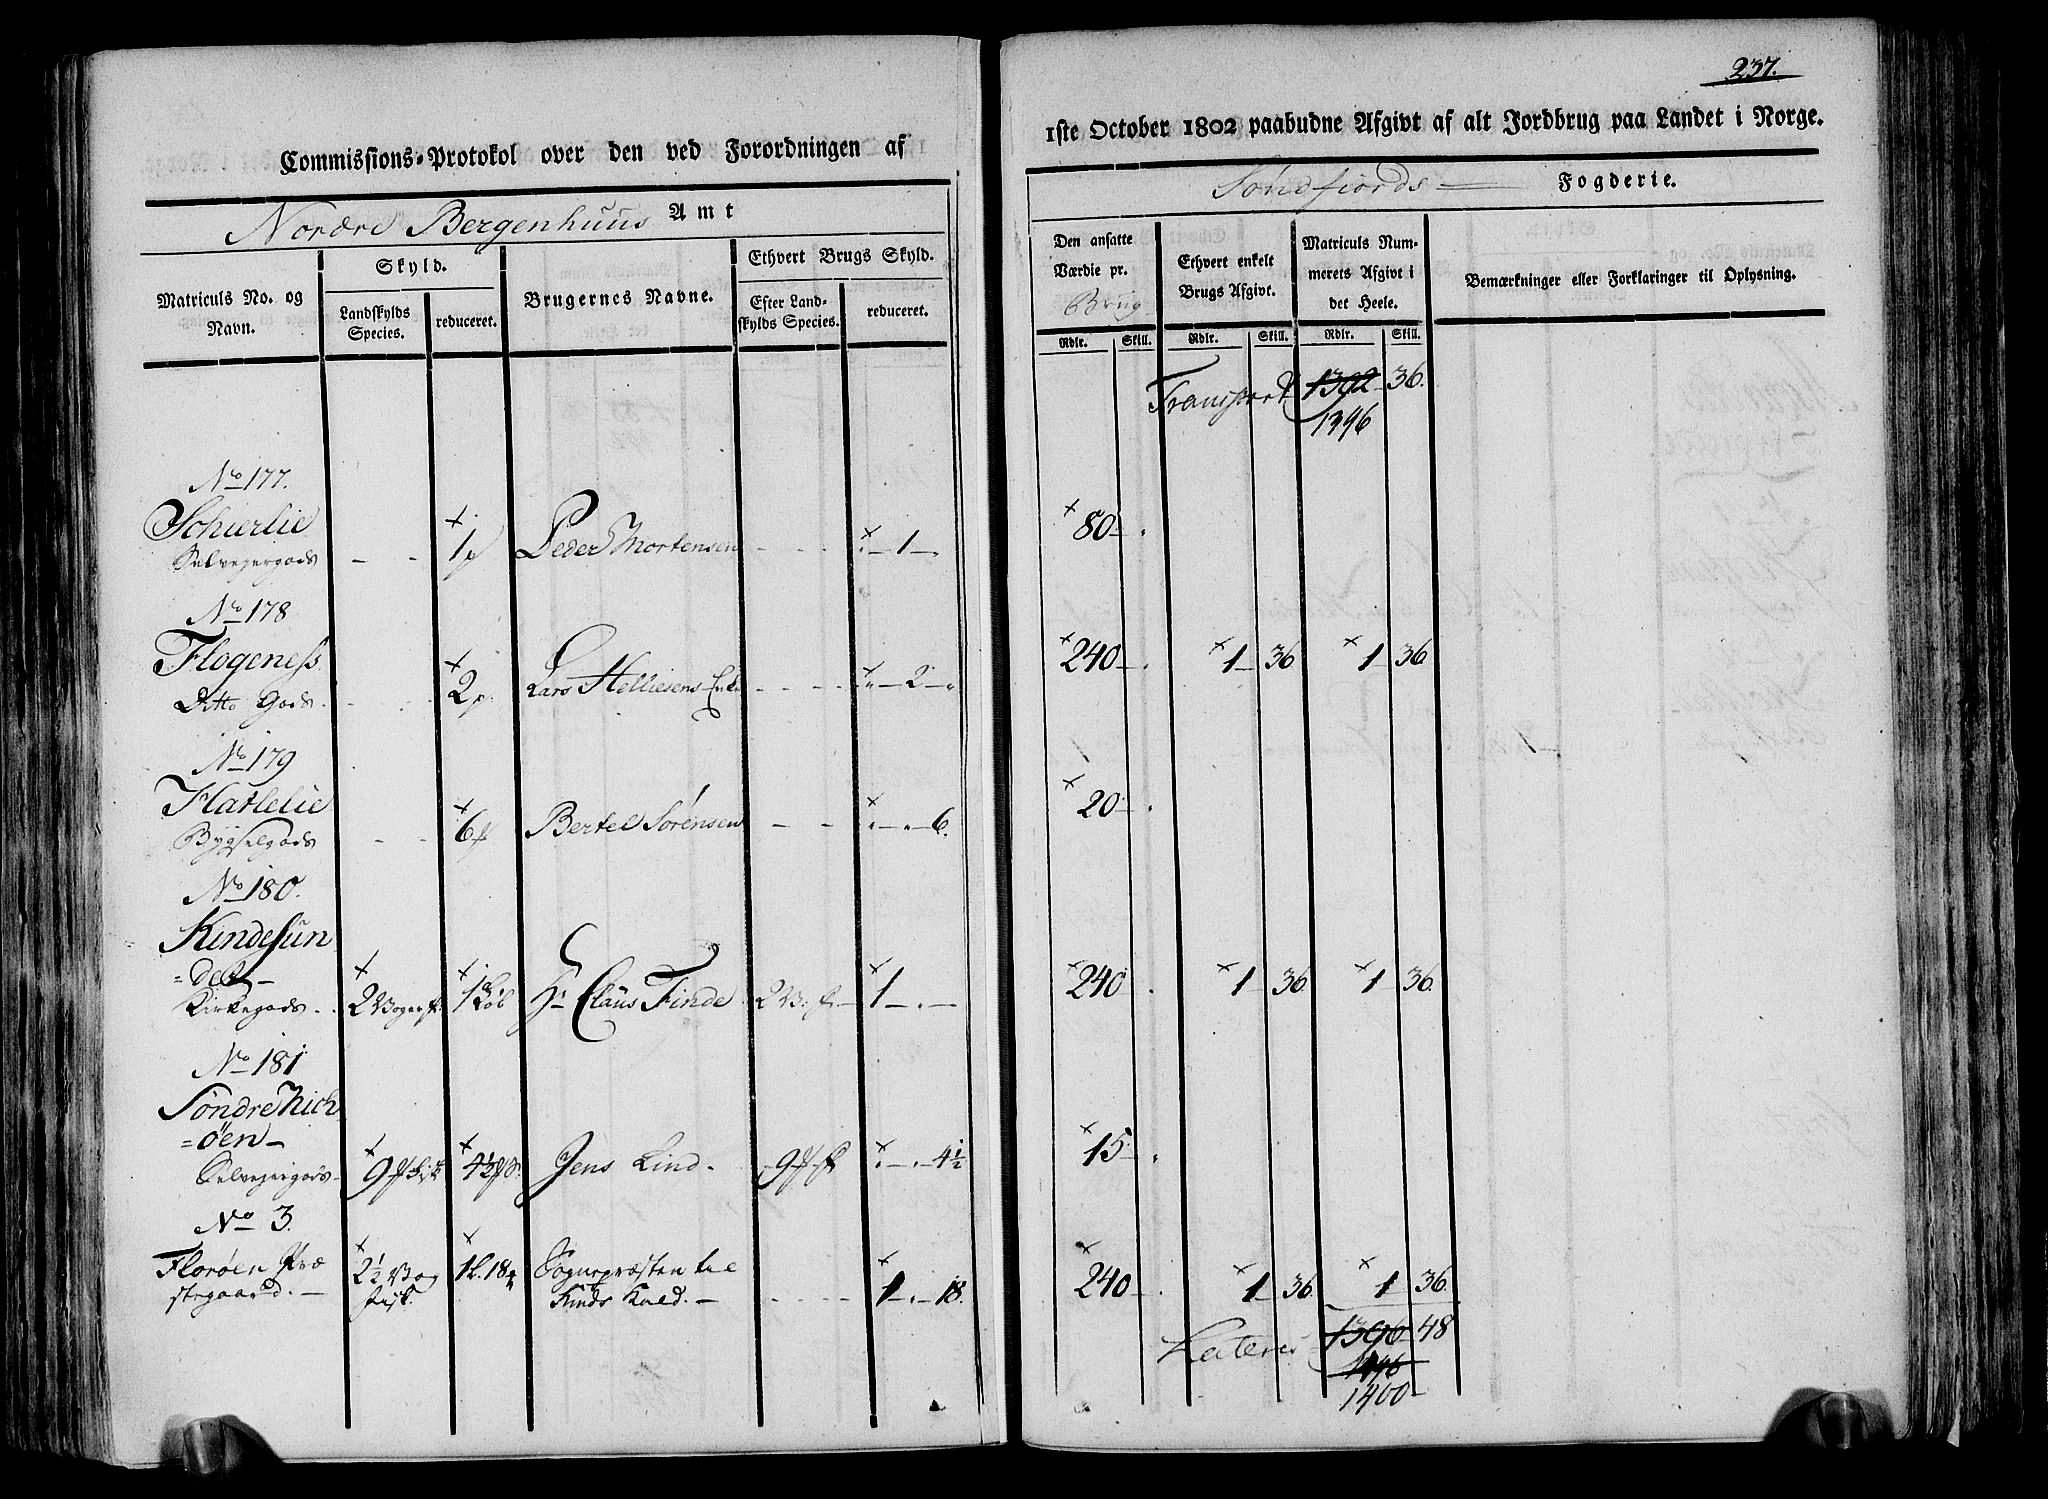 237.
Commissions-Protokol over den ved Forordningen af
1ste October 1802 paabudne Afgivt af alt Jordbrug paa Landet i Norge.
Nordre Bergenhuus Amt
Søndfjords Fogderie.
Matriculs No. og Navn.
Skyld.
Landskylds Species.
reduceret.
Brugernes Navne.
Ethvert Brugs Skyld.
Efter Landskylds Species.
reduceret.
Den ansatte Værdie pr. Brug
Rdlr. Skill.
Ethvert enkelt Brugs Afgivt.
Rdlr. Skill.
Matriculs Nummerets Afgivt i det Heele.
Rdlr. Skill.
Bemærkninger eller Forklaringer til Oplysning.
Transport 1392 36.
1396
No 177.
Schierlie
Selveyergods - - 1 p Peder Mortensen - - - - 1 - 80 -
No 178
Flogeness
Ditto Gods. 2 p. Lars Helliesens Enke - - - - 2 - 240 - 1 - 36 1 36
No 179
Hatlelie
Bygselgods - - 6 Bertel Sørensen - - - - 6. 20 -
No 180.
Kindesun
=det -
Kirkegods . . 2 Voger f. 1 Løb Hr Claus Finde 2 V: f. - 1 - . - 240 1 36. 1 36.
No 181
Søndre Nich
=öen -
Selveyergods - 9 fisk 4½ Jens Lind. - 9 - . - 4½ 15 -
No 3.
Florøen Præ
stegaard. - 2½ Vog fisk. 1 l. 18 Sognepræsten til
Kinds Kald. - - - - - 1 - . - 18. 240 - 1 36. 1 36.
Lateris 1396 48
1400 -